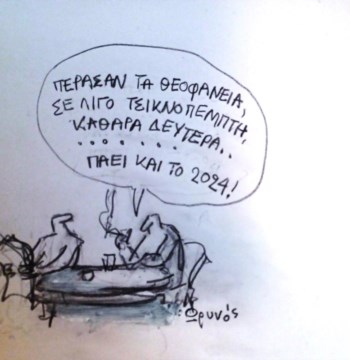 ΠΕΡΑΣΑΝ ΤΑ ΘΕΟΦΑΝΕΙΑ,
ΣΕ ΛΙΓΟ ΤΣΙΚΝΟΠΕΜΠΤΗ,
ΚΑΘΑΡΑ ΔΕΥΤΕΡΑ..
.......
ΠΑΕΙ ΚΑΙ ΤΟ 2024!
Ωρυνός